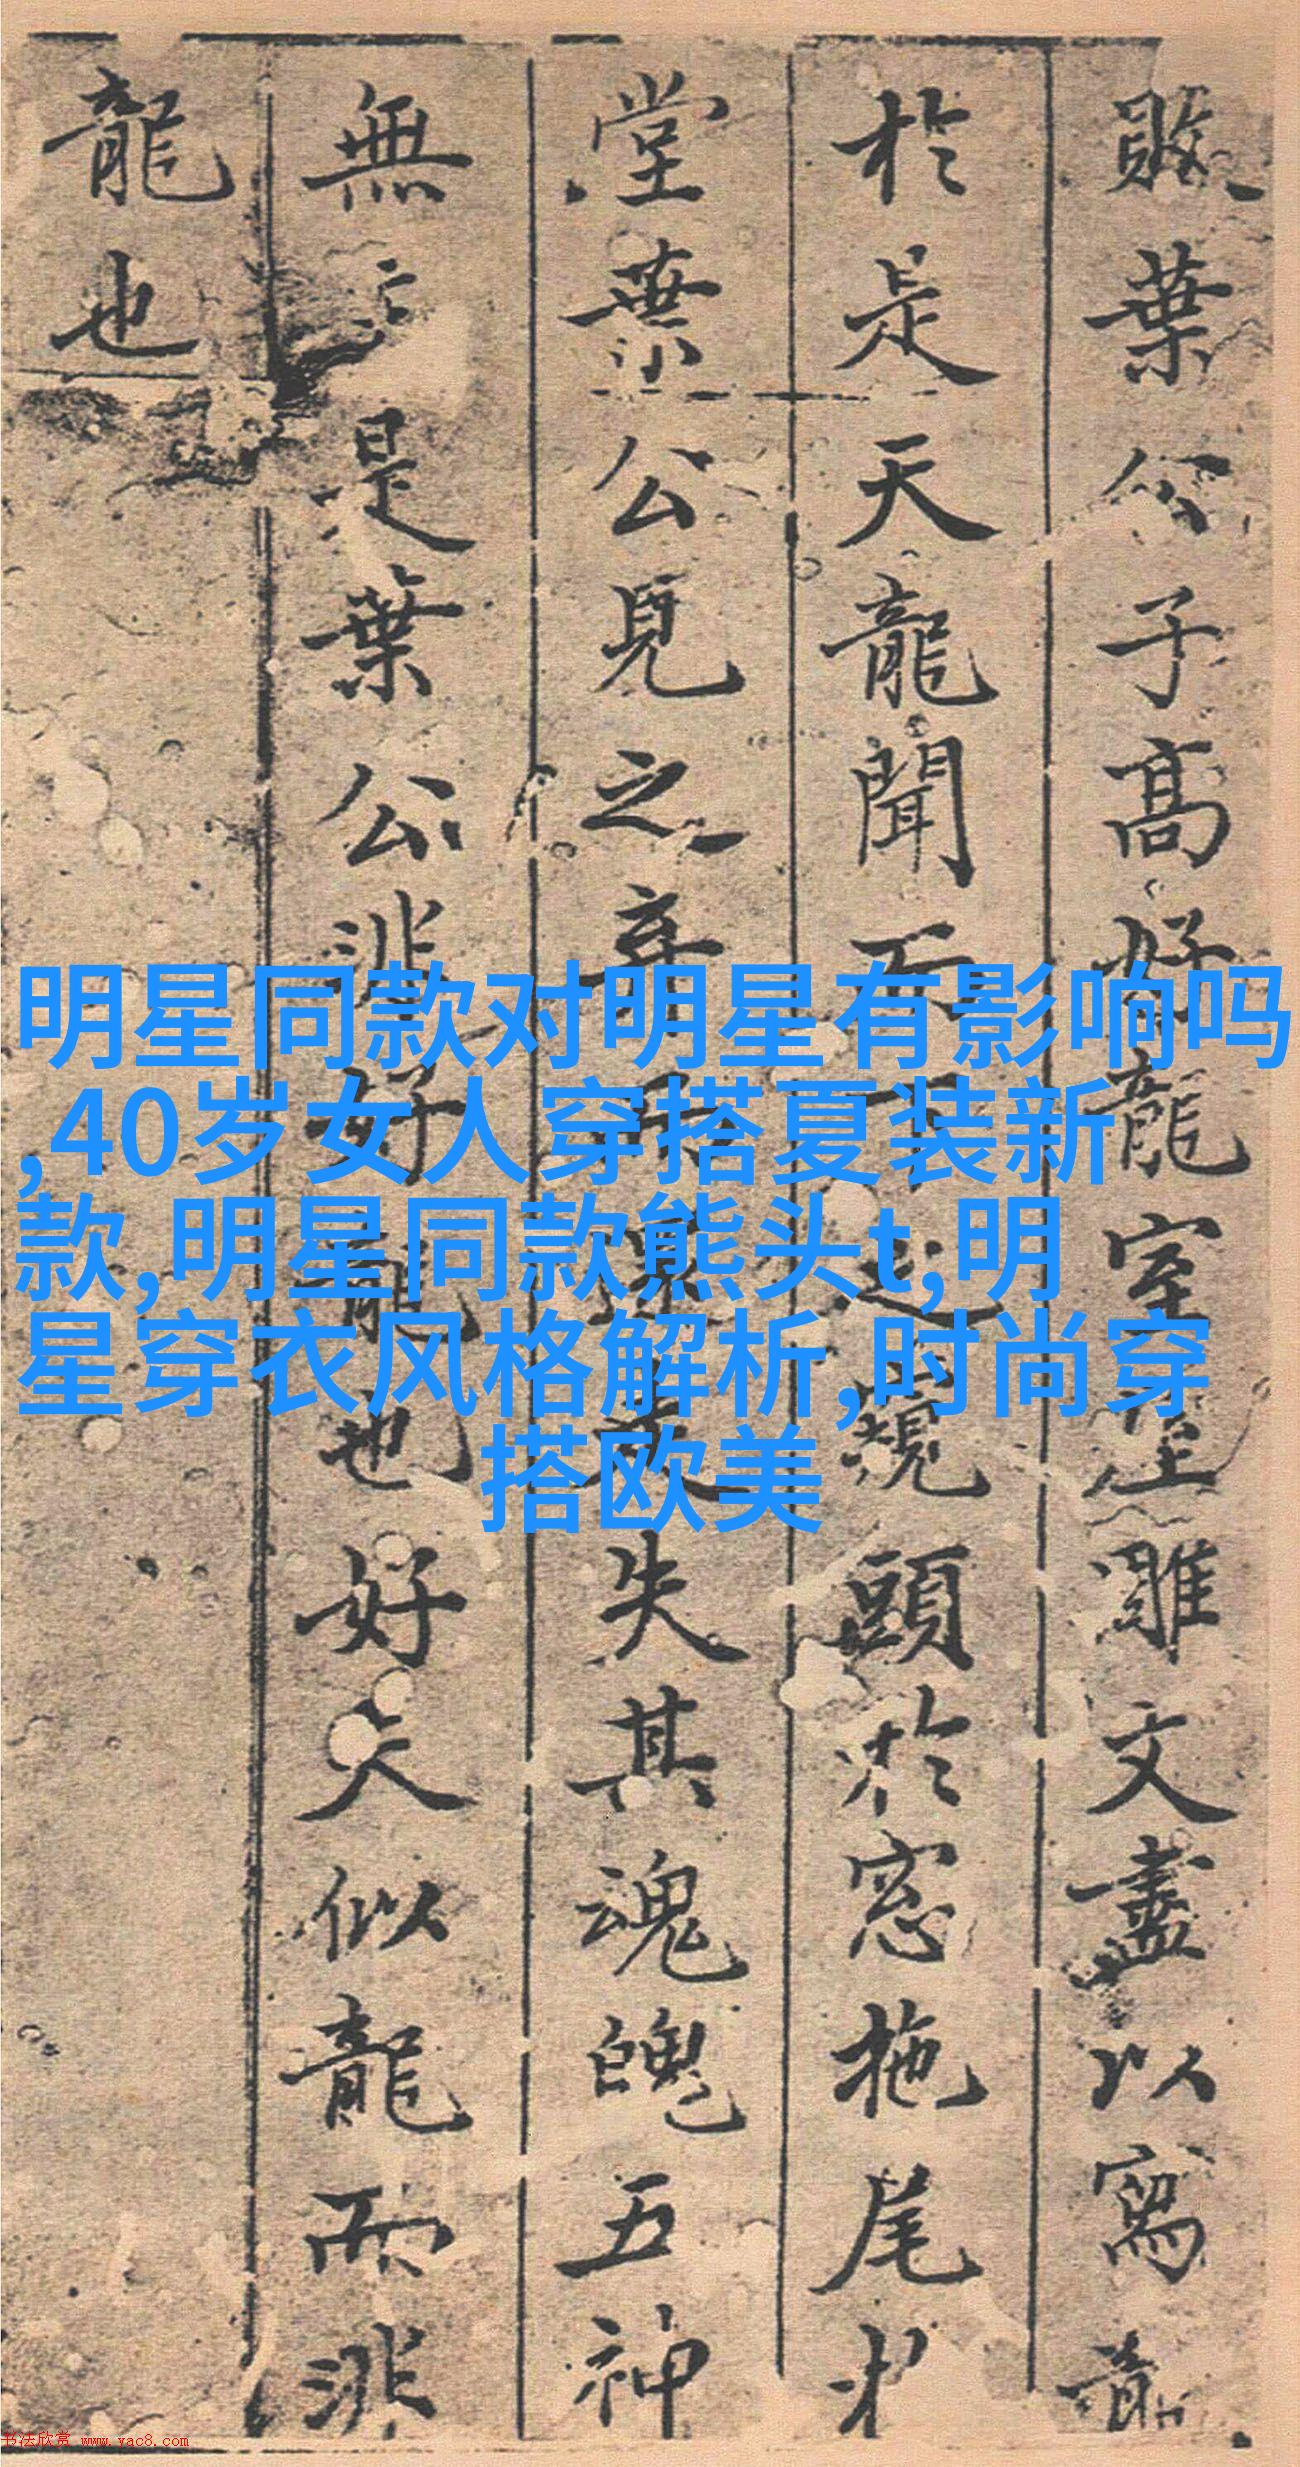 敗葉公子高好龍室屋雕文盡以寫龍
於是天龍聞而下之窺頭於窓拖尾於
堂葉公見之弃而還走失其魂魄五神
無主是葉公非好龍也好夫似龍而非
龍也
明星同款对明星有影响吗
,40岁女人穿搭夏装新
款,明星同款熊头t,明
星穿衣风格解析,时尚穿
搭欧美
书法欣赏 www.yac8.com